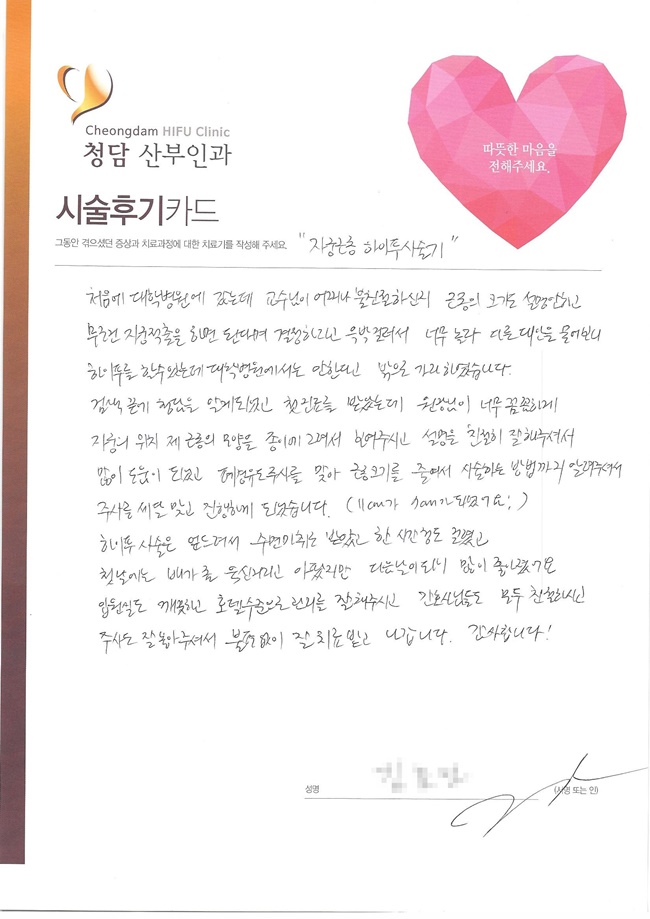 Cheongdam HIFU Clinic
청담 산부인과
따뜻한 마음을
전해주세요.
시술후기카드
그동안 겪으셨던 증상과 치료과정에 대한 치료기를 작성해 주세요.
"자궁근종 하이푸시술기"
처음에 대학병원에 갔는데 교수님이 어찌나 불친절하신지 근종의 크기도 설명안하고
무조건 자궁적출을 하면 된다며 결정하라고 윽박질러서 너무 놀라 다른 대안을 물어보니
하이푸를 할수있는데 대학병원에서는 안한다고 밖으로 가라 하였습니다.
검색 끝에 청담을 알게되었고 첫진료를 받았는데 원장님이 너무 꼼꼼하게
자궁의 위치 제 근종의 모양을 종이에 그려서 보여주시고 설명을 친절히 잘해주셔서
많이 도움이 되었고 폐경유도주사를 맞아 근종크기를 줄여서 시술하는 방법까지 알려주셔서
주사를 세달 맞고 진행하게 되었습니다. (11cm가 cm가 되었어요;)
하이푸 시술은 엎드려서 수면마취로 받았고 한 시간정도 걸렸고
첫날에는 배가 좀 욱신거리고 아팠지만 다음날이 되니 많이 좋아졌어요
입원실도 깨끗하고 호텔수준으로 관리를 잘해주시고 간호사님들도 모두 친절하시고
주사도 잘 놓아주셔서 불편없이 잘 치료받고 나갑니다. 감사합니다!
성명
(서명 또는 인)